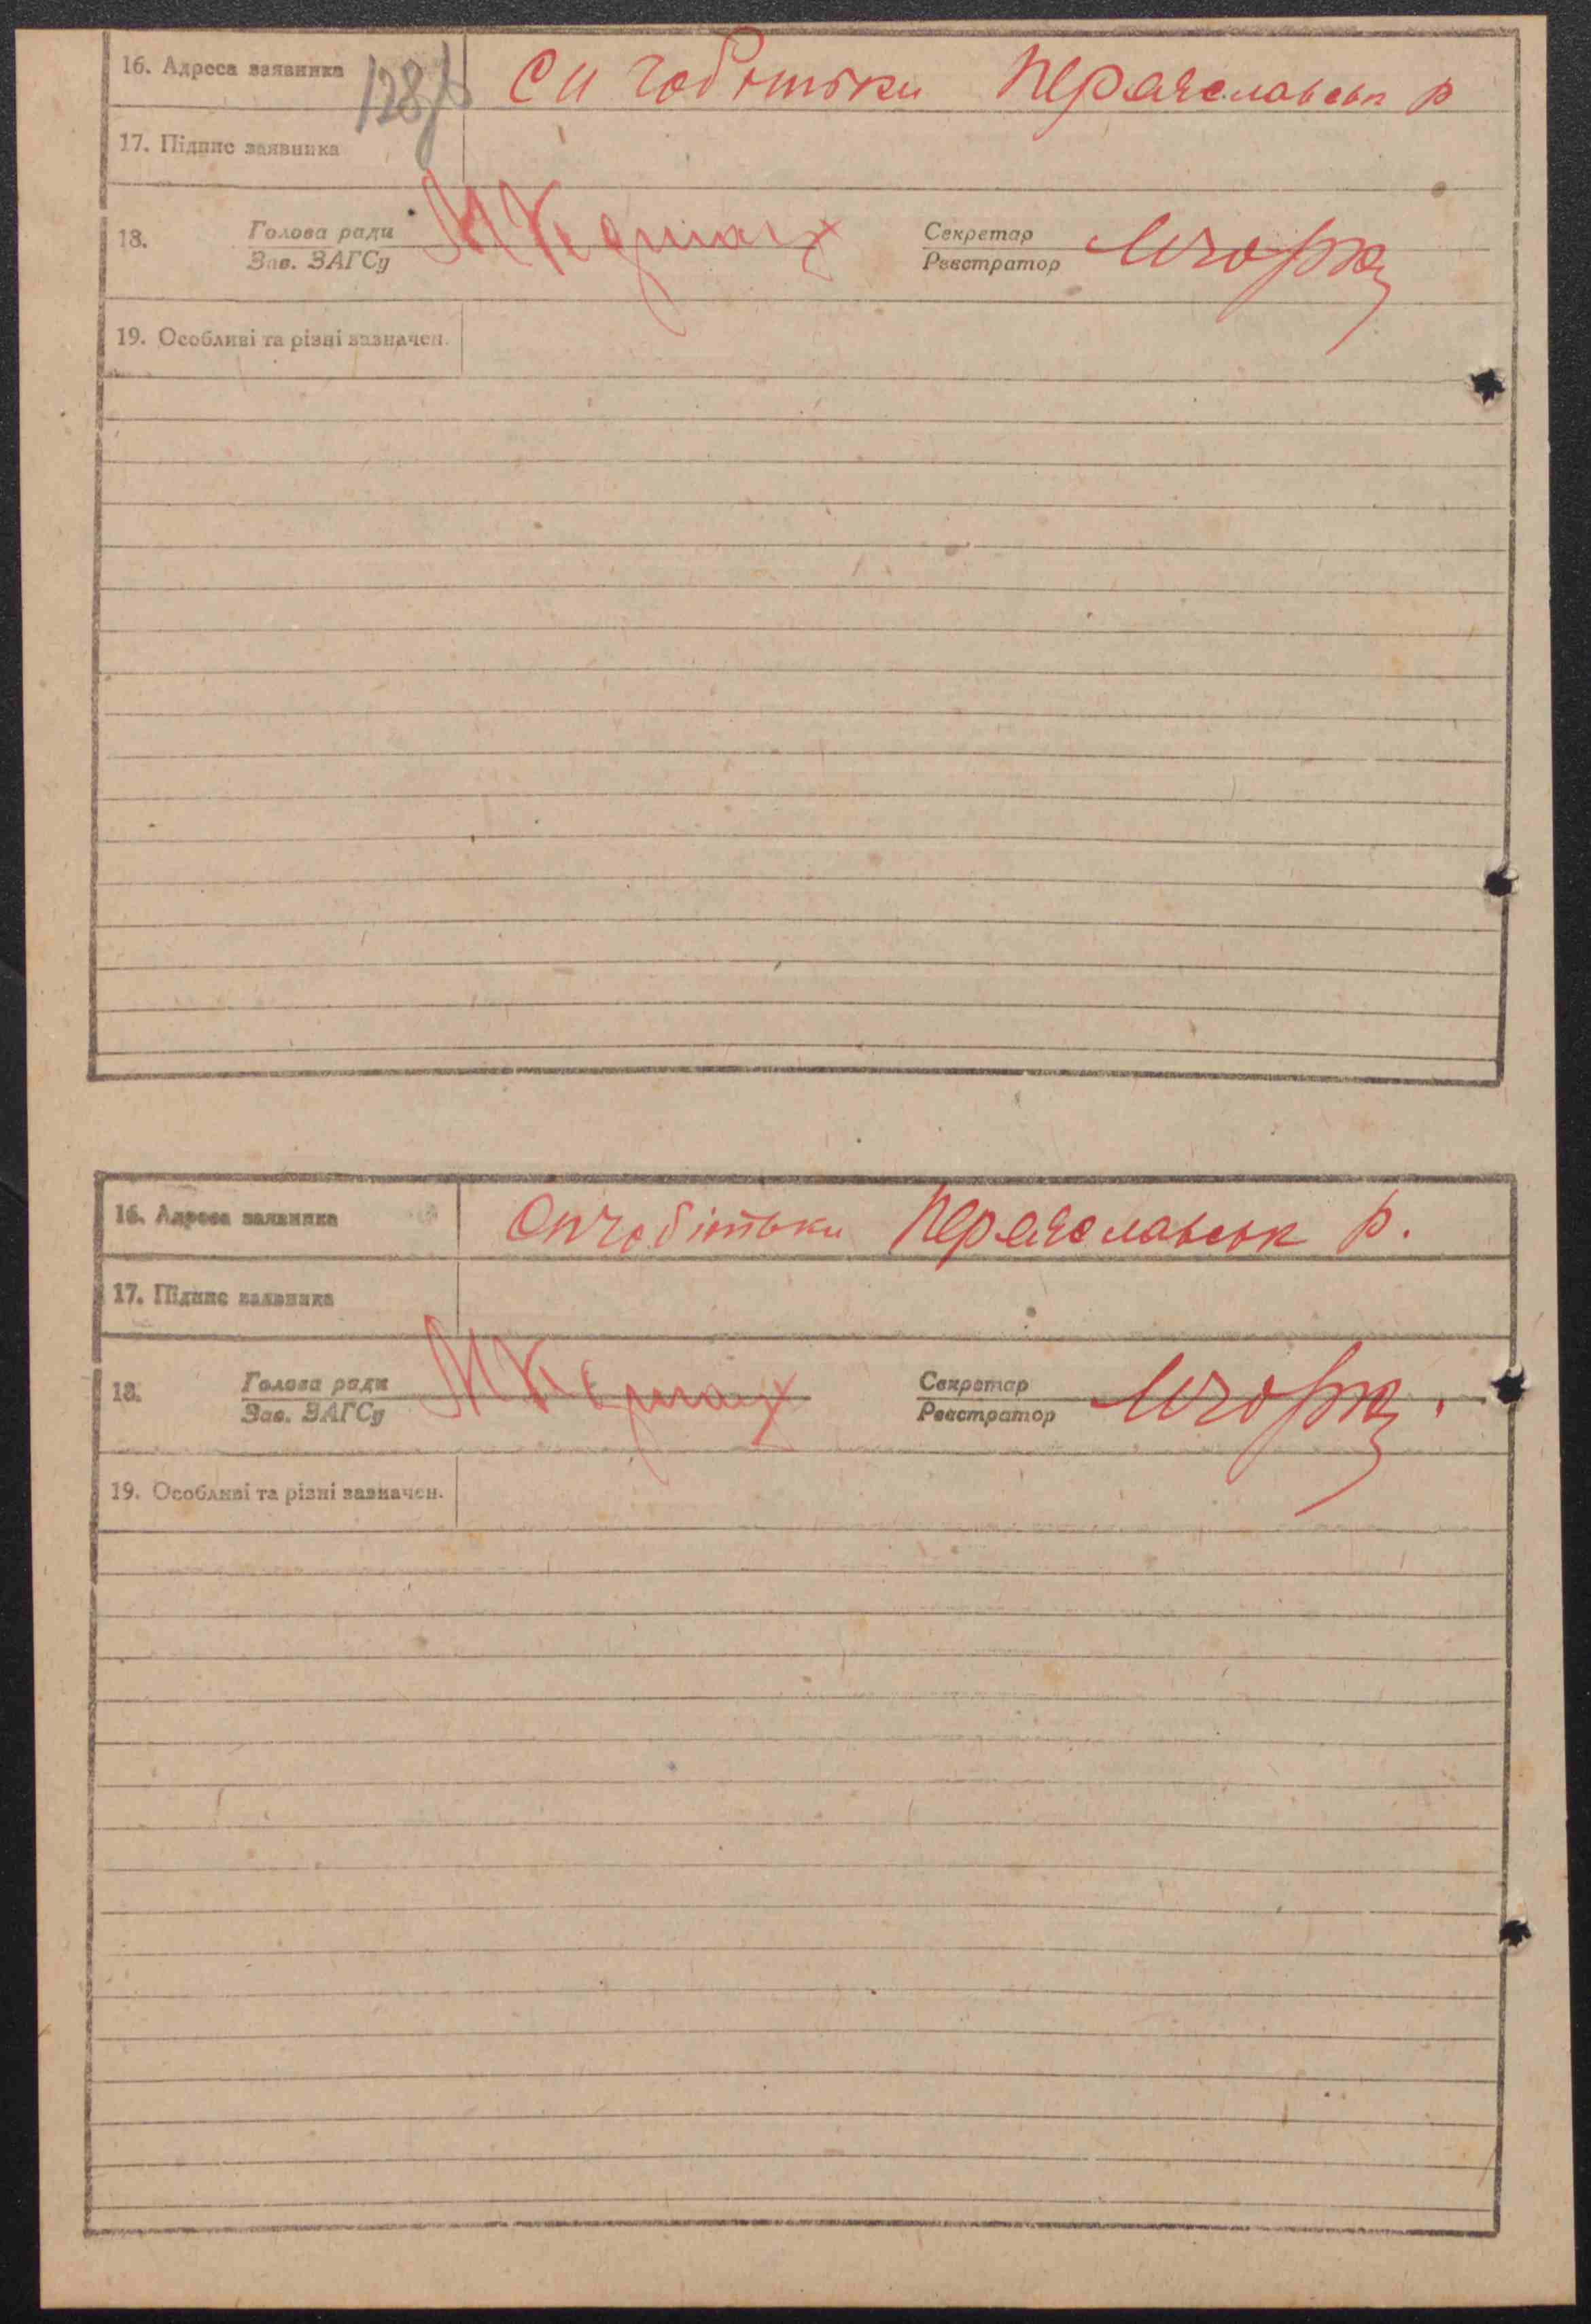 16. Адреса заявника 128/б Сичобітьки Переяславськ р
17. Підпис заявника
18. Голова ради Секретар
Зав. ЗАГСу Реєстратор
19. Особливі та різні зазначен.
16. Адреса заявника Переяславськ р.
17. Підпис заявника
18. Голова ради Секретар
Зав. ЗАГСу Реєстратор
19. Особливі та різні зазначен.